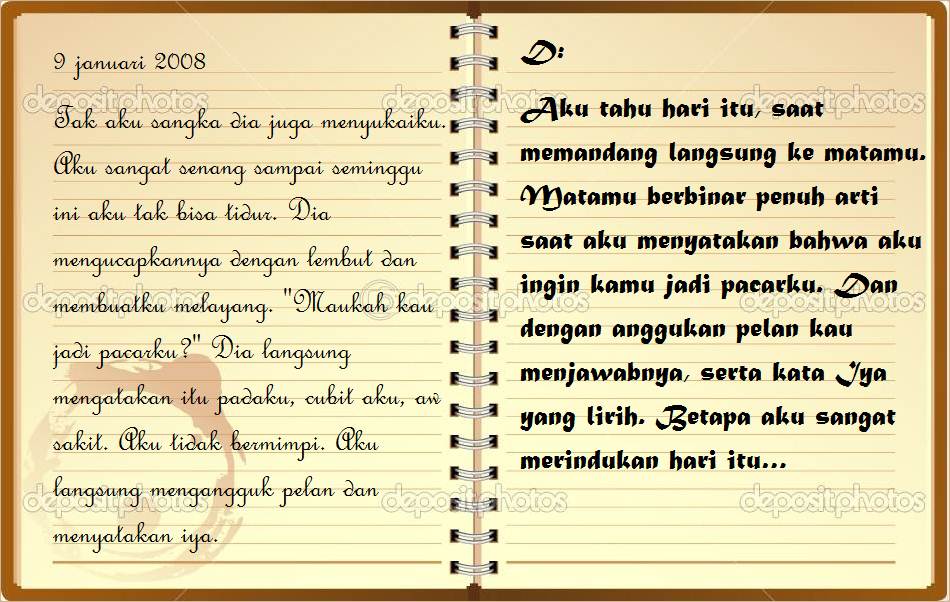 9 januari 2008
Tak aku sangka dia juga menyukaiku.
Aku sangat senang sampai seminggu
ini aku tak bisa tidur. Dia
mengucapkannya dengan lembut dan
membuatku melayang. "Maukah kau
jadi pacarku?" Dia langsung
mengatakan itu padaku, cubit aku, aw
sakit. Aku tidak bermimpi. Aku
langsung mengangguk pelan dan
menyatakan iya.
D:
Aku tahu hari itu, saat
memandang langsung ke matamu.
Matamu berbinar penuh arti
saat aku menyatakan bahwa aku
ingin kamu jadi pacarku. Dan
dengan anggukan pelan kau
menjawabnya, serta kata Iya
yang lirih. Betapa aku sangat
merindukan hari itu...
depositphotos
depositphotos
depositphotos
depositphotos
depositphotos
depositphotos
depositphotos
depositphotos
depositphotos